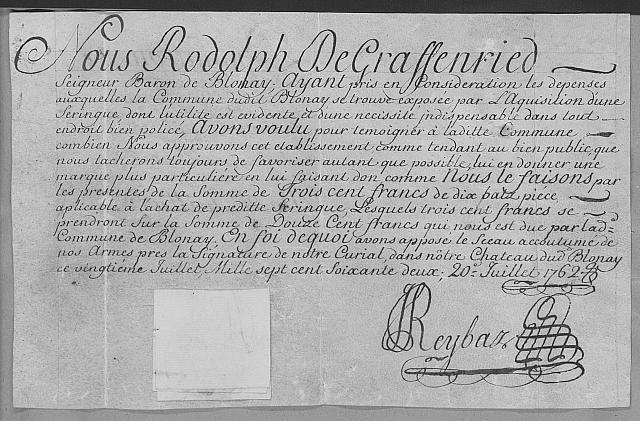 Nous Rodolph DeGraffenried
Seigneur Baron de Blonay; Ayant pris en Consideration les depenses
auxquelles la Commune dudit Blonay se trouve exposée par L'Aquisition d'une
Seringue, dont lutilité est evidente, et dune necissité indispensable dans tout
endroit bien policé, Avons voulu pour temoigner à laditte Commune
combien Nous approuvons cet etablissement comme tendant au bien public, que
nous tacherons toujours de favoriser autant que possible, lui en donner une
marque plus particuliere en lui faisant don, comme Nous le faisons par
les presentes de la Somme de Trois cent francs de dix batz pièce
aplicable à lachat de preditte Seringue, Lesquels trois cent francs se
prendront sur la Somme de Douze Cent francs qui nous est due par lad.e
Commune de Blonay, En foi dequoi avons apposé le Sceau accoutumé de
nos Armes pres la Signature de nôtre Curial, dans nôtre Chateau dud. Blonay
ce vingtième Juillet, Mille sept cent Soixante deux; 20.e Juillet 1762.
Reybaz